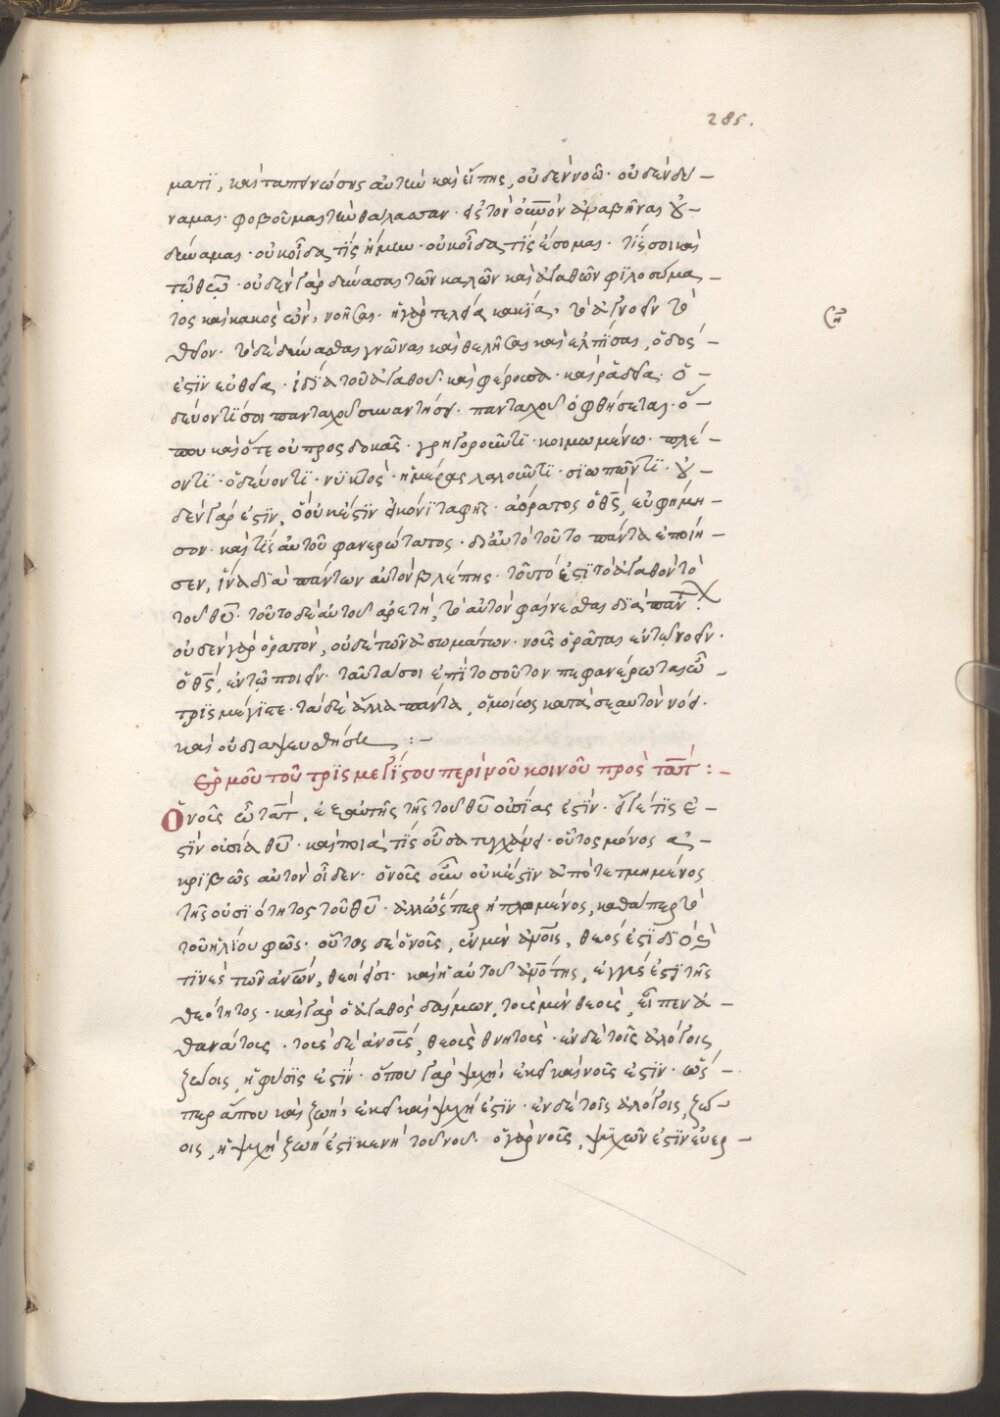 285.
ματι, καὶ ταπεινώσῃς αὐτὴν καὶ εἴπῃς, οὐδὲν νοῶ· οὐδὲν δύ-
ναμαι· φοβοῦμαι τὴν θάλασσαν· εἰς τὸν οὐνὸν ἀναβῆναι οὐ
δύναμαι· οὐκ οἶδα τίς ἤμην· οὐκ οἶδα τίς ἔσομαι· τί σοι καὶ
τῷ θεῷ· οὐδὲν γὰρ δύνασαι τῶν καλῶν καὶ ἀγαθῶν φιλοσώμα-
τος καὶ κακὸς ὤν, νοῆσαι· ἡ γὰρ τελεία κακία, τὸ ἀγνοεῖν τὸ
θεῖον· τὸ δὲ δύνασθαι γνῶναι καὶ θελῆσαι καὶ ἐλπίσαι, ὁδός
ἐστιν εὐθεῖα· ἰδία τοῦ ἀγαθοῦ· καὶ φέρουσα· καὶ ῥαδία· ὁ-
δεύοντί σοι πανταχοῦ συναντήσει· πανταχοῦ ὀφθήσεται· ὅ-
που καὶ ὅτε οὐ προσδοκᾷς· γρηγοροῦντι· κοιμωμένω· πλέ-
οντι· ὁδεύοντι· νυκτὸς· ἡμέρας λαλοῦντι· σιωπῶντι· οὐ
δὲν γάρ ἐστιν, ὃ οὐκ ἔστιν εἶτα φῂς· ἀόρατος ὁ θς, εὐφήμη-
σον· καὶ τίς αὐτοῦ φανερώτατος· δι αὐτὸ τοῦτο πάντα ἐποίη-
σεν, ἵνα διὰ πάντων αὐτὸν βλέπῃς· τοῦτό ἐστι τὸ ἀγαθὸν τὸ
τοῦ θῦ· τοῦτο δὲ αὐτοῦ ἀρετὴ, τὸ αὐτὸν φαίνεσθαι διὰ πάντ
οὐδὲν γὰρ ὁρατὸν, οὐδὲ τῶν ἀσωμάτων· νοῦς ὁρᾶται ἐν τῷ νοεῖν·
ὁ θς, ἐν τῷ ποιεῖν· ταῦτα σοι ἐπὶ τοσοῦτον πεφανέρωται ὦ
τρισμέγιστε· τὰ δὲ ἄλλα πάντα, ὁμοίως κατὰ σεαυτὸν νόει·
καὶ οὐ διαψευσθήσῃ :-
Ἑρμοῦ τοῦ τρισμεγίστου περὶ νοῦ κοινοῦ πρὸς τὰτ :-
Ὁ νοῦς ὦ τὰτ, ἐξ αὐτῆς τῆς τοῦ θῦ οὐσίας ἐστίν· εἴ γέ τις ἐ-
στὶν οὐσία θῦ· καὶ ποία τίς οὖσα τυγχάνει· οὗτος μόνος ἀ-
κριβῶς αὐτὸν οἶδεν· ὁ νοῦς οὖν οὐκ ἔστιν ἀποτετμημένος
τῆς οὐσιότητος τοῦ θῦ· ἀλλ ὥσπερ ἡπλωμένος, καθάπερ τὸ
τοῦ ἡλίου φῶς· οὗτος δὲ ὁ νοῦς, ἐν μὲν ἀνοις, θεός ἐστι διό
τινες τῶν ἀνων, θεοί εἰσι· καὶ ἡ αὐτοῦ ἀνότης, ἐγγύς ἐστι τῆς
θεότητος· καὶ γὰρ ὁ ἀγαθὸς δαίμων, τοὺς μὲν θεοὺς, εἶπεν ἀ-
θανάτους· τοὺς δὲ ἀνους, θεοὺς θνητοὺς· ἐν δὲ τοῖς ἀλόγοις
ζώοις, ἡ φύσις ἐστίν· ὅπου γὰρ ψυχὴ, ἐκεῖ καὶ νοῦς ἐστιν· ὥσ-
περ ὅπου καὶ ζωὴ, ἐκεῖ καὶ ψυχή ἐστιν· ἐν δὲ τοῖς ἀλόγοις ζώ-
οις, ἡ ψυχὴ ζωή ἐστι κενὴ τοῦ νοῦ· ὁ γὰρ νοῦς, ψυχῶν ἐστιν εὐερ-